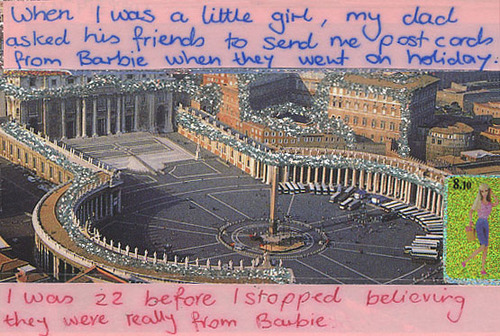 When I was a little girl, my dad
asked his friends to send me post cards
from Barbie when they went on holiday.
8.10
I was 22 before I stopped believing
they were really from Barbie.